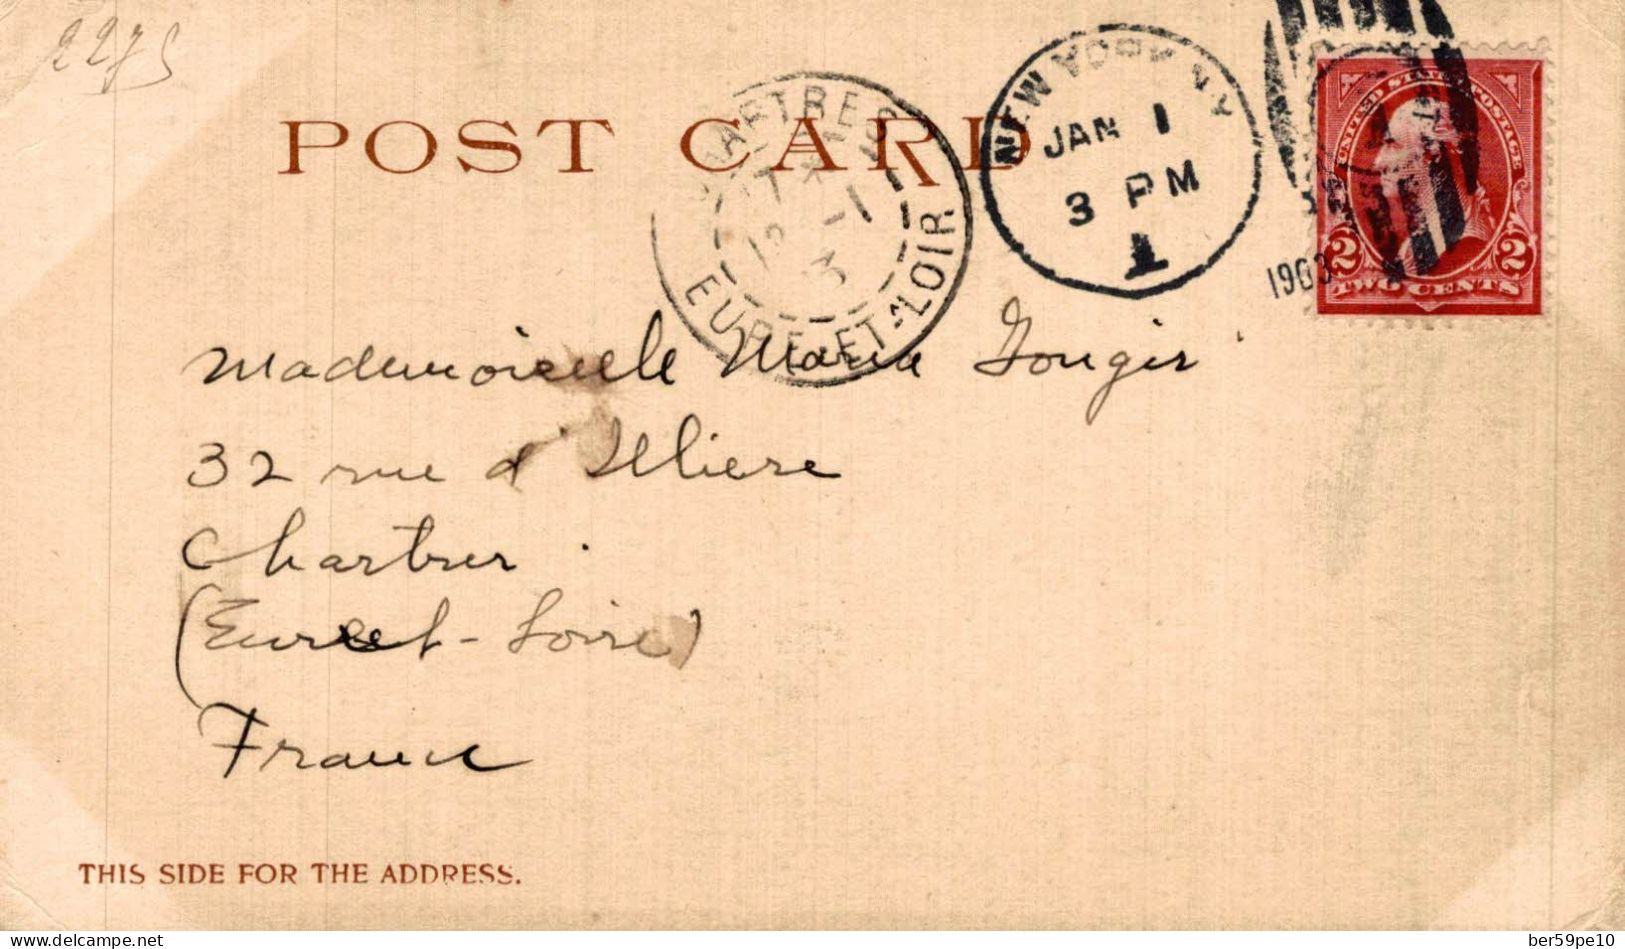 2275
POST CARD
CHARTRES
EURE-ET-LOIR
NEW YORK N.Y.
JAN 1
3 PM
1
1903
UNITED STATES POSTAGE
2 2
TWO CENTS
Mademoiselle Maria Gougis
32 rue d'Illiers
Chartres.
(Eure et-Loire)
France
THIS SIDE FOR THE ADDRESS.
delcampe.net
ber59pe10